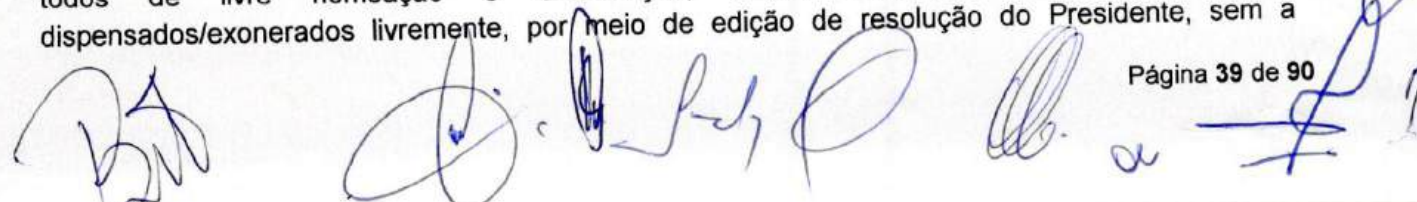 todos de livre
dispensados/exonerados livremente, por meio de edição de resolução do Presidente, sem a
Página 39 de 90